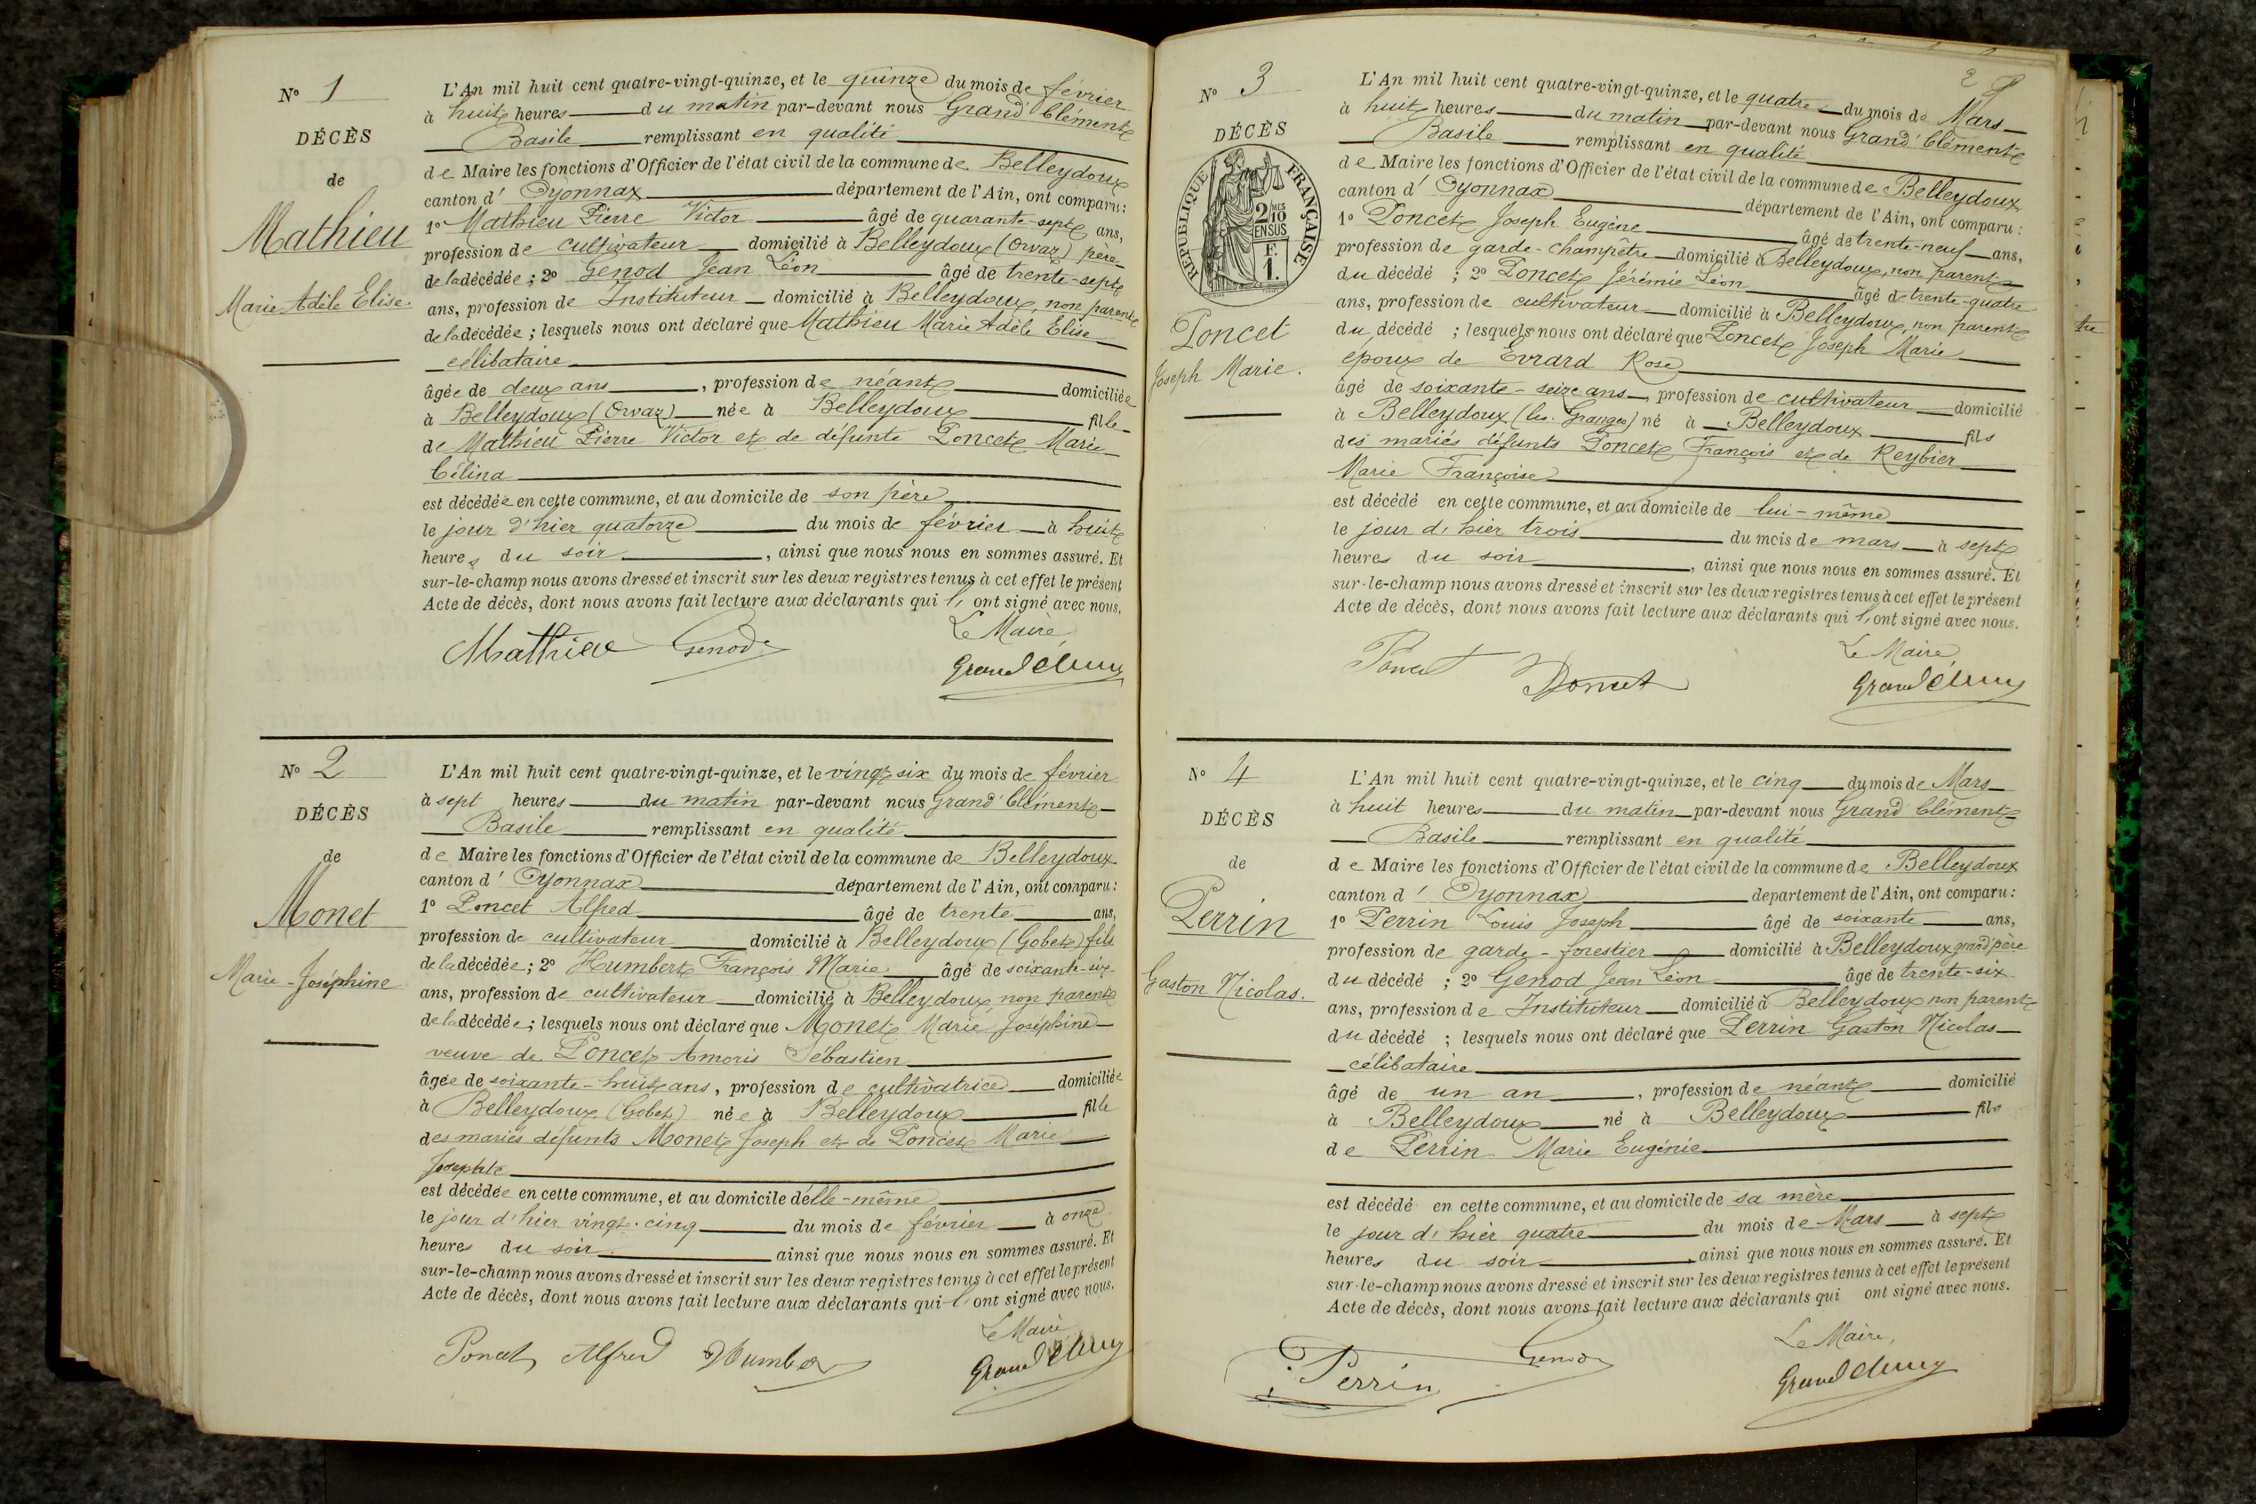 N° 1
DÉCÈS
de
Mathieu
Marie Adèle Elise.
L'An mil huit cent quatre-vingt-quinze, et le quinze du mois de février
à huit heures du matin par-devant nous Grand Clément
Basile remplissant en qualité
de Maire les fonctions d'Officier de l'état civil de la commune de Belleydoux
canton d' Oyonnax département de l'Ain, ont comparu :
1° Mathieu Pierre Victor âgé de quarante-sept ans,
profession de cultivateur domicilié à Belleydoux (Orvaz) père
de la décédée ; 2° Genod Jean Léon âgé de trente-sept
ans, profession de Instituteur domicilié à Belleydoux, non parent
de la décédée ; lesquels nous ont déclaré que Mathieu Marie Adèle Elise
célibataire
âgée de deux ans, profession de néant domiciliée
à Belleydoux (Orvaz) née à Belleydoux fille
de Mathieu Pierre Victor et de défunte Poncet Marie
Célina
est décédée en cette commune, et au domicile de son père
le jour d'hier quatorze du mois de février à huit
heures du soir, ainsi que nous nous en sommes assuré. Et
sur-le-champ nous avons dressé et inscrit sur les deux registres tenus à cet effet le présent
Acte de décès, dont nous avons fait lecture aux déclarants qui l' ont signé avec nous.
Mathieu Genod Le Maire,
Grand Clément
N° 2
DÉCÈS
de
Monet
Marie-Joséphine
L'An mil huit cent quatre-vingt-quinze, et le vingt six du mois de février
à sept heures du matin par-devant nous Grand Clément
Basile remplissant en qualité
de Maire les fonctions d'Officier de l'état civil de la commune de Belleydoux
canton d' Oyonnax département de l'Ain, ont comparu :
1° Poncet Alfred âgé de trente ans,
profession de cultivateur domicilié à Belleydoux (Gobet) fils
de la décédée ; 2° Humbert François Marie âgé de soixante-six
ans, profession de cultivateur domicilié à Belleydoux, non parent
de la décédée ; lesquels nous ont déclaré que Monet Marie Joséphine
veuve de Poncet Amoris Sébastien
âgée de soixante-huit ans, profession de cultivatrice domiciliée
à Belleydoux (Gobet) née à Belleydoux fille
des mariés défunts Monet Joseph et de Poncet Marie
Josephte
est décédée en cette commune, et au domicile d'elle-même
le jour d'hier vingt-cinq du mois de février à onze
heures du soir ainsi que nous nous en sommes assuré. Et
sur-le-champ nous avons dressé et inscrit sur les deux registres tenus à cet effet le présent
Acte de décès, dont nous avons fait lecture aux déclarants qui l' ont signé avec nous.
Poncet Alfred Humbert Le Maire
Grand Clément
2
N° 3
DÉCÈS
RÉPUBLIQUE FRANÇAISE
2/10 MES
EN SUS
F.
1.
Poncet
Joseph Marie.
L'An mil huit cent quatre-vingt-quinze, et le quatre du mois de Mars
à huit heures du matin par-devant nous Grand Clément
Basile remplissant en qualité
de Maire les fonctions d'Officier de l'état civil de la commune de Belleydoux
canton d' Oyonnax département de l'Ain, ont comparu :
1° Poncet Joseph Eugène âgé de trente-neuf ans,
profession de garde-champêtre domicilié à Belleydoux, non parent
du décédé ; 2° Poncet Jérémie Léon âgé de trente-quatre
ans, profession de cultivateur domicilié à Belleydoux, non parent
du décédé ; lesquels nous ont déclaré que Poncet Joseph Marie
époux de Evrard Rose
âgé de soixante-seize ans, profession de cultivateur domicilié
à Belleydoux (les Granges) né à Belleydoux fils
des mariés défunts Poncet François et de Reybier
Marie Françoise
est décédé en cette commune, et au domicile de lui-même
le jour d'hier trois du mois de mars à sept
heures du soir, ainsi que nous nous en sommes assuré. Et
sur-le-champ nous avons dressé et inscrit sur les deux registres tenus à cet effet le présent
Acte de décès, dont nous avons fait lecture aux déclarants qui l' ont signé avec nous.
Poncet Poncet Le Maire
Grand Clément
N° 4
DÉCÈS
de
Perrin
Gaston Nicolas.
L'An mil huit cent quatre-vingt-quinze, et le cinq du mois de Mars
à huit heures du matin par-devant nous Grand Clément
Basile remplissant en qualité
de Maire les fonctions d'Officier de l'état civil de la commune de Belleydoux
canton d' Oyonnax département de l'Ain, ont comparu :
1° Perrin Louis Joseph âgé de soixante ans,
profession de garde-forestier domicilié à Belleydoux grand père
du décédé ; 2° Genod Jean Léon âgé de trente-six
ans, profession de Instituteur domicilié à Belleydoux non parent
du décédé ; lesquels nous ont déclaré que Perrin Gaston Nicolas
célibataire
âgé de un an, profession de néant domicilié
à Belleydoux né à Belleydoux fils
de Perrin Marie Eugénie
est décédé en cette commune, et au domicile de sa mère
le jour d'hier quatre du mois de Mars à sept
heures du soir, ainsi que nous nous en sommes assuré. Et
sur-le-champ nous avons dressé et inscrit sur les deux registres tenus à cet effet le présent
Acte de décès, dont nous avons fait lecture aux déclarants qui ont signé avec nous.
Perrin Genod Le Maire,
Grand Clément